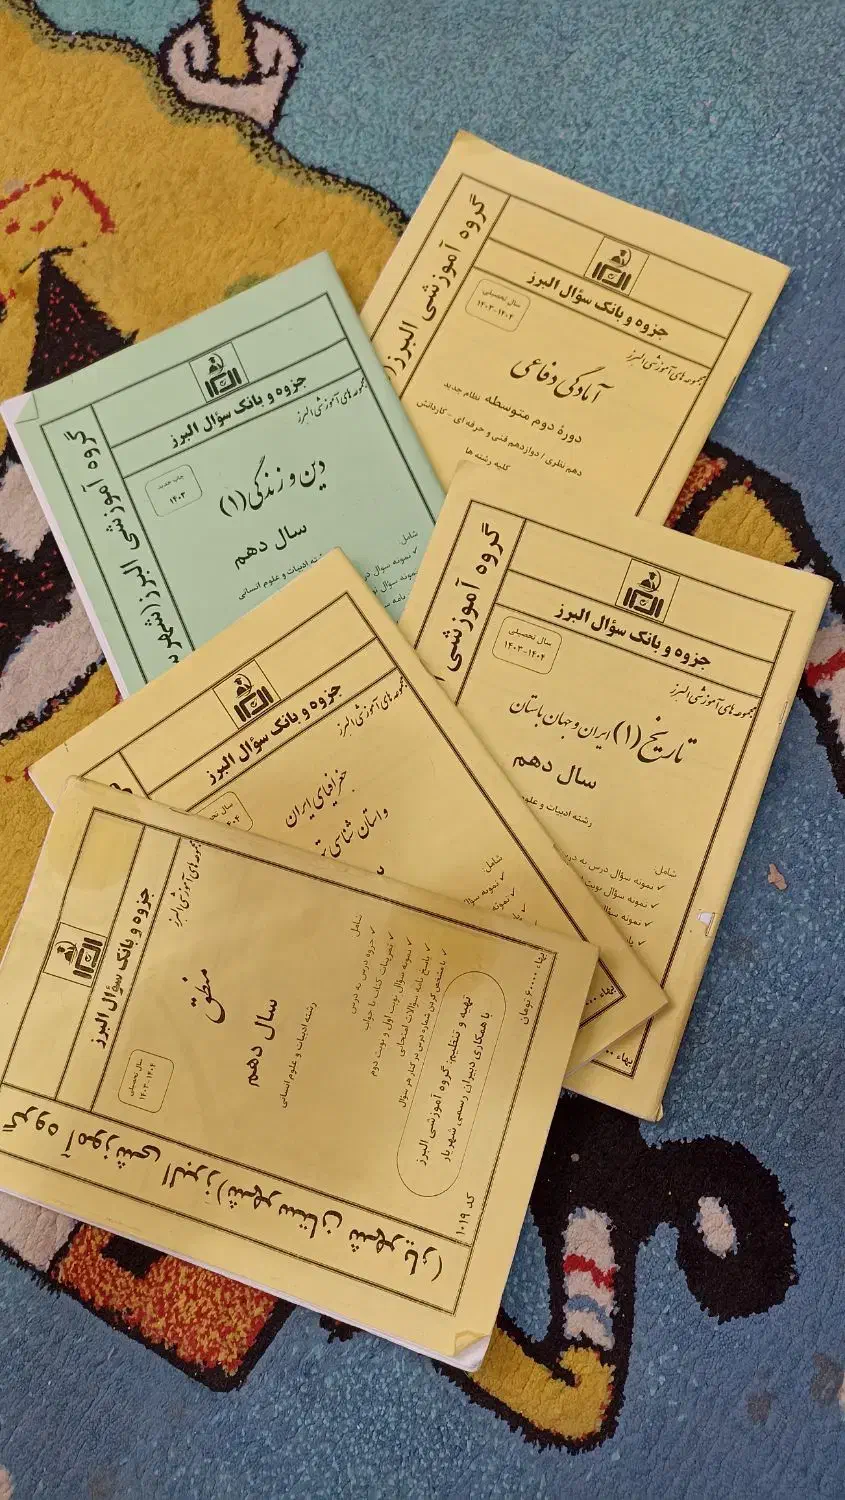 گروه آموزشی البرز(
جزوه و بانک سؤال البرز
مجموعه های آموزشی البرز
سال تحصیلی
۱۴۰۳-۱۴۰۴
آمادگی دفاعی
دورهٔ دوم متوسطه نظام جدید
دهم نظری / دوازدهم فنی و حرفه ای - کاردانش
کلیه رشته ها
گروه آموزشی البرز(شهر
جزوه و بانک سؤال البرز
مجموعه های آموزشی البرز
چاپ جدید
۱۴۰۳
دین و زندگی (۱)
سال دهم
رشته ادبیات و علوم انسانی
شامل:
✓ نمونه سؤال
گروه آموزشی
جزوه و بانک سؤال البرز
مجموعه های آموزشی البرز
سال تحصیلی
۱۴۰۳-۱۴۰۴
تاریخ (۱) ایران و جهان باستان
سال دهم
رشته ادبیات و علو
شامل:
✓ نمونه سؤال درس به در
✓ نمونه سؤال نوبت
✓ نمونه سؤا
بهاء
جزوه و بانک سؤال البرز
مجموعه های آموزشی البرز
جغرافیای ایران
و استان شناسی
شامل:
✓ نمونه سؤ
✓ نمونه
بهاء
گروه آموزشی البرز(شهرستان شهریار)
جزوه و بانک سؤال البرز
مجموعه های آموزشی البرز
سال تحصیلی
۱۴۰۳-۱۴۰۴
منطق
سال دهم
رشته ادبیات و علوم انسانی
شامل:
✓ جزوه درس به درس
✓ تمرینات کتاب با جواب
✓ نمونه سؤال نوبت اول و نوبت دوم
✓ پاسخ نامه سؤالات امتحانی
✓ با مشخص کردن شماره درس در کنار هر سؤال
تهیه و تنظیم: گروه آموزشی البرز
با همکاری دبیران رسمی شهریار
بهاء ۶۰۰۰۰ تومان
کد ۱۰۱۹